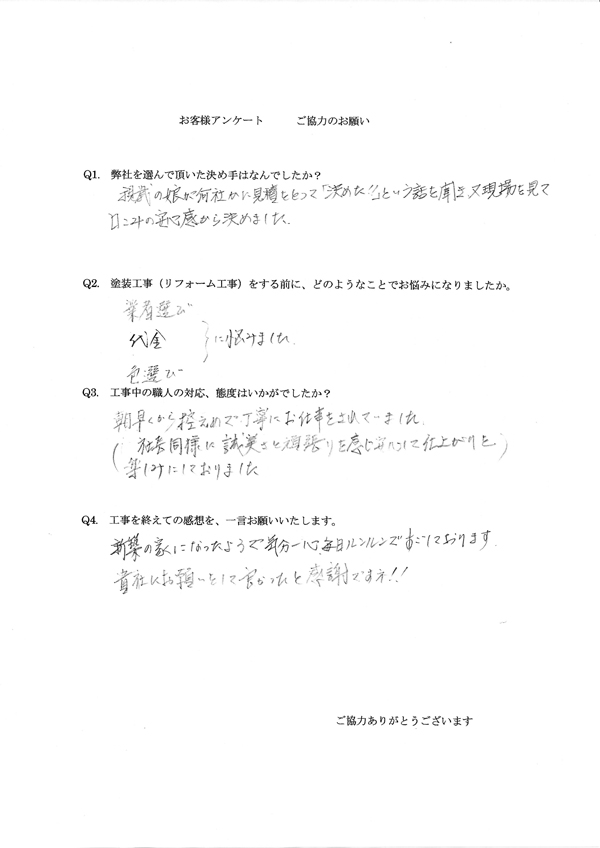 お客様アンケート　　ご協力のお願い
Q1. 弊社を選んで頂いた決め手はなんでしたか？
の娘が何社かに見積をとって「決めた！」という話を聞き、又現場を見て
口コミの安心感から決めました。
Q2. 塗装工事（リフォーム工事）をする前に、どのようなことでお悩みになりましたか。
業者選び
代金　　に悩みました。
色選び
Q3. 工事中の職人の対応、態度はいかがでしたか？
朝早くから控えめで丁寧にお仕事をされていました。
（社長同様に誠実さと頑張りを感じ 仕上がりを）
楽しみにしておりました
Q4. 工事を終えての感想を、一言お願いいたします。
新築の家になったようで気分一心、毎日ルンルンですごしております。
貴社にお願いをして良かったと感謝ですネ!!
ご協力ありがとうございます